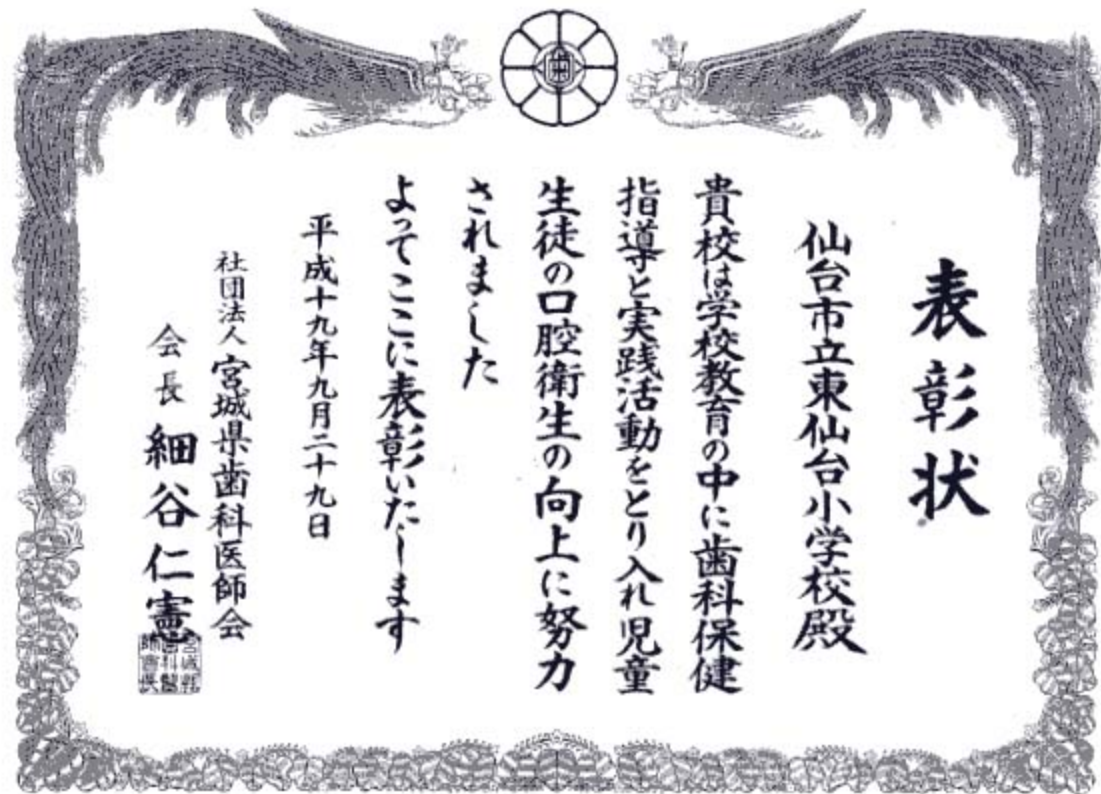 表彰状
仙台市立東仙台小学校殿
貴校は学校教育の中に歯科保健
指導と実践活動をとり入れ児童
生徒の口腔衛生の向上に努力
されました
よってここに表彰いたします
平成十九年九月二十九日
社団法人宮城県歯科医師会
会長細谷仁憲